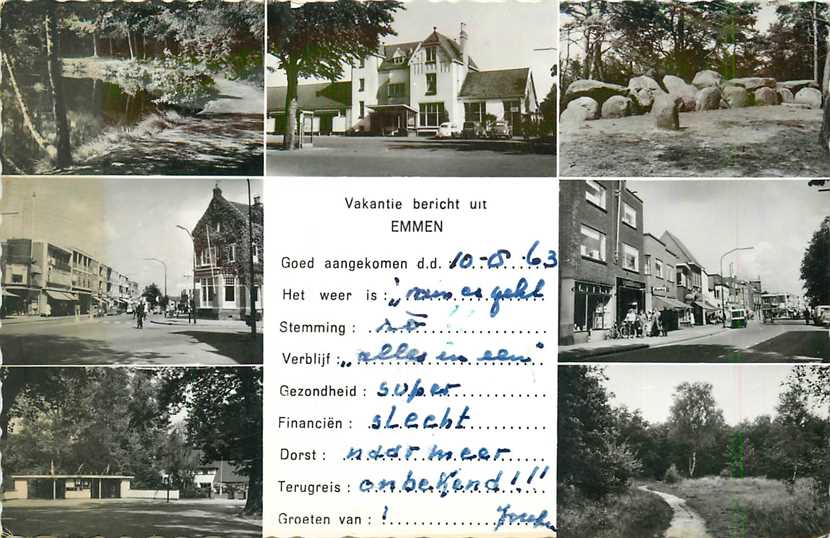 Vakantie bericht uit
EMMEN
Goed aangekomen d.d. 10-8-'63
Het weer is :
Stemming : zo
Verblijf : „alles in een"
Gezondheid : super
Financiën : slecht
Dorst : naar meer
Terugreis : onbekend!!!
Groeten van : !